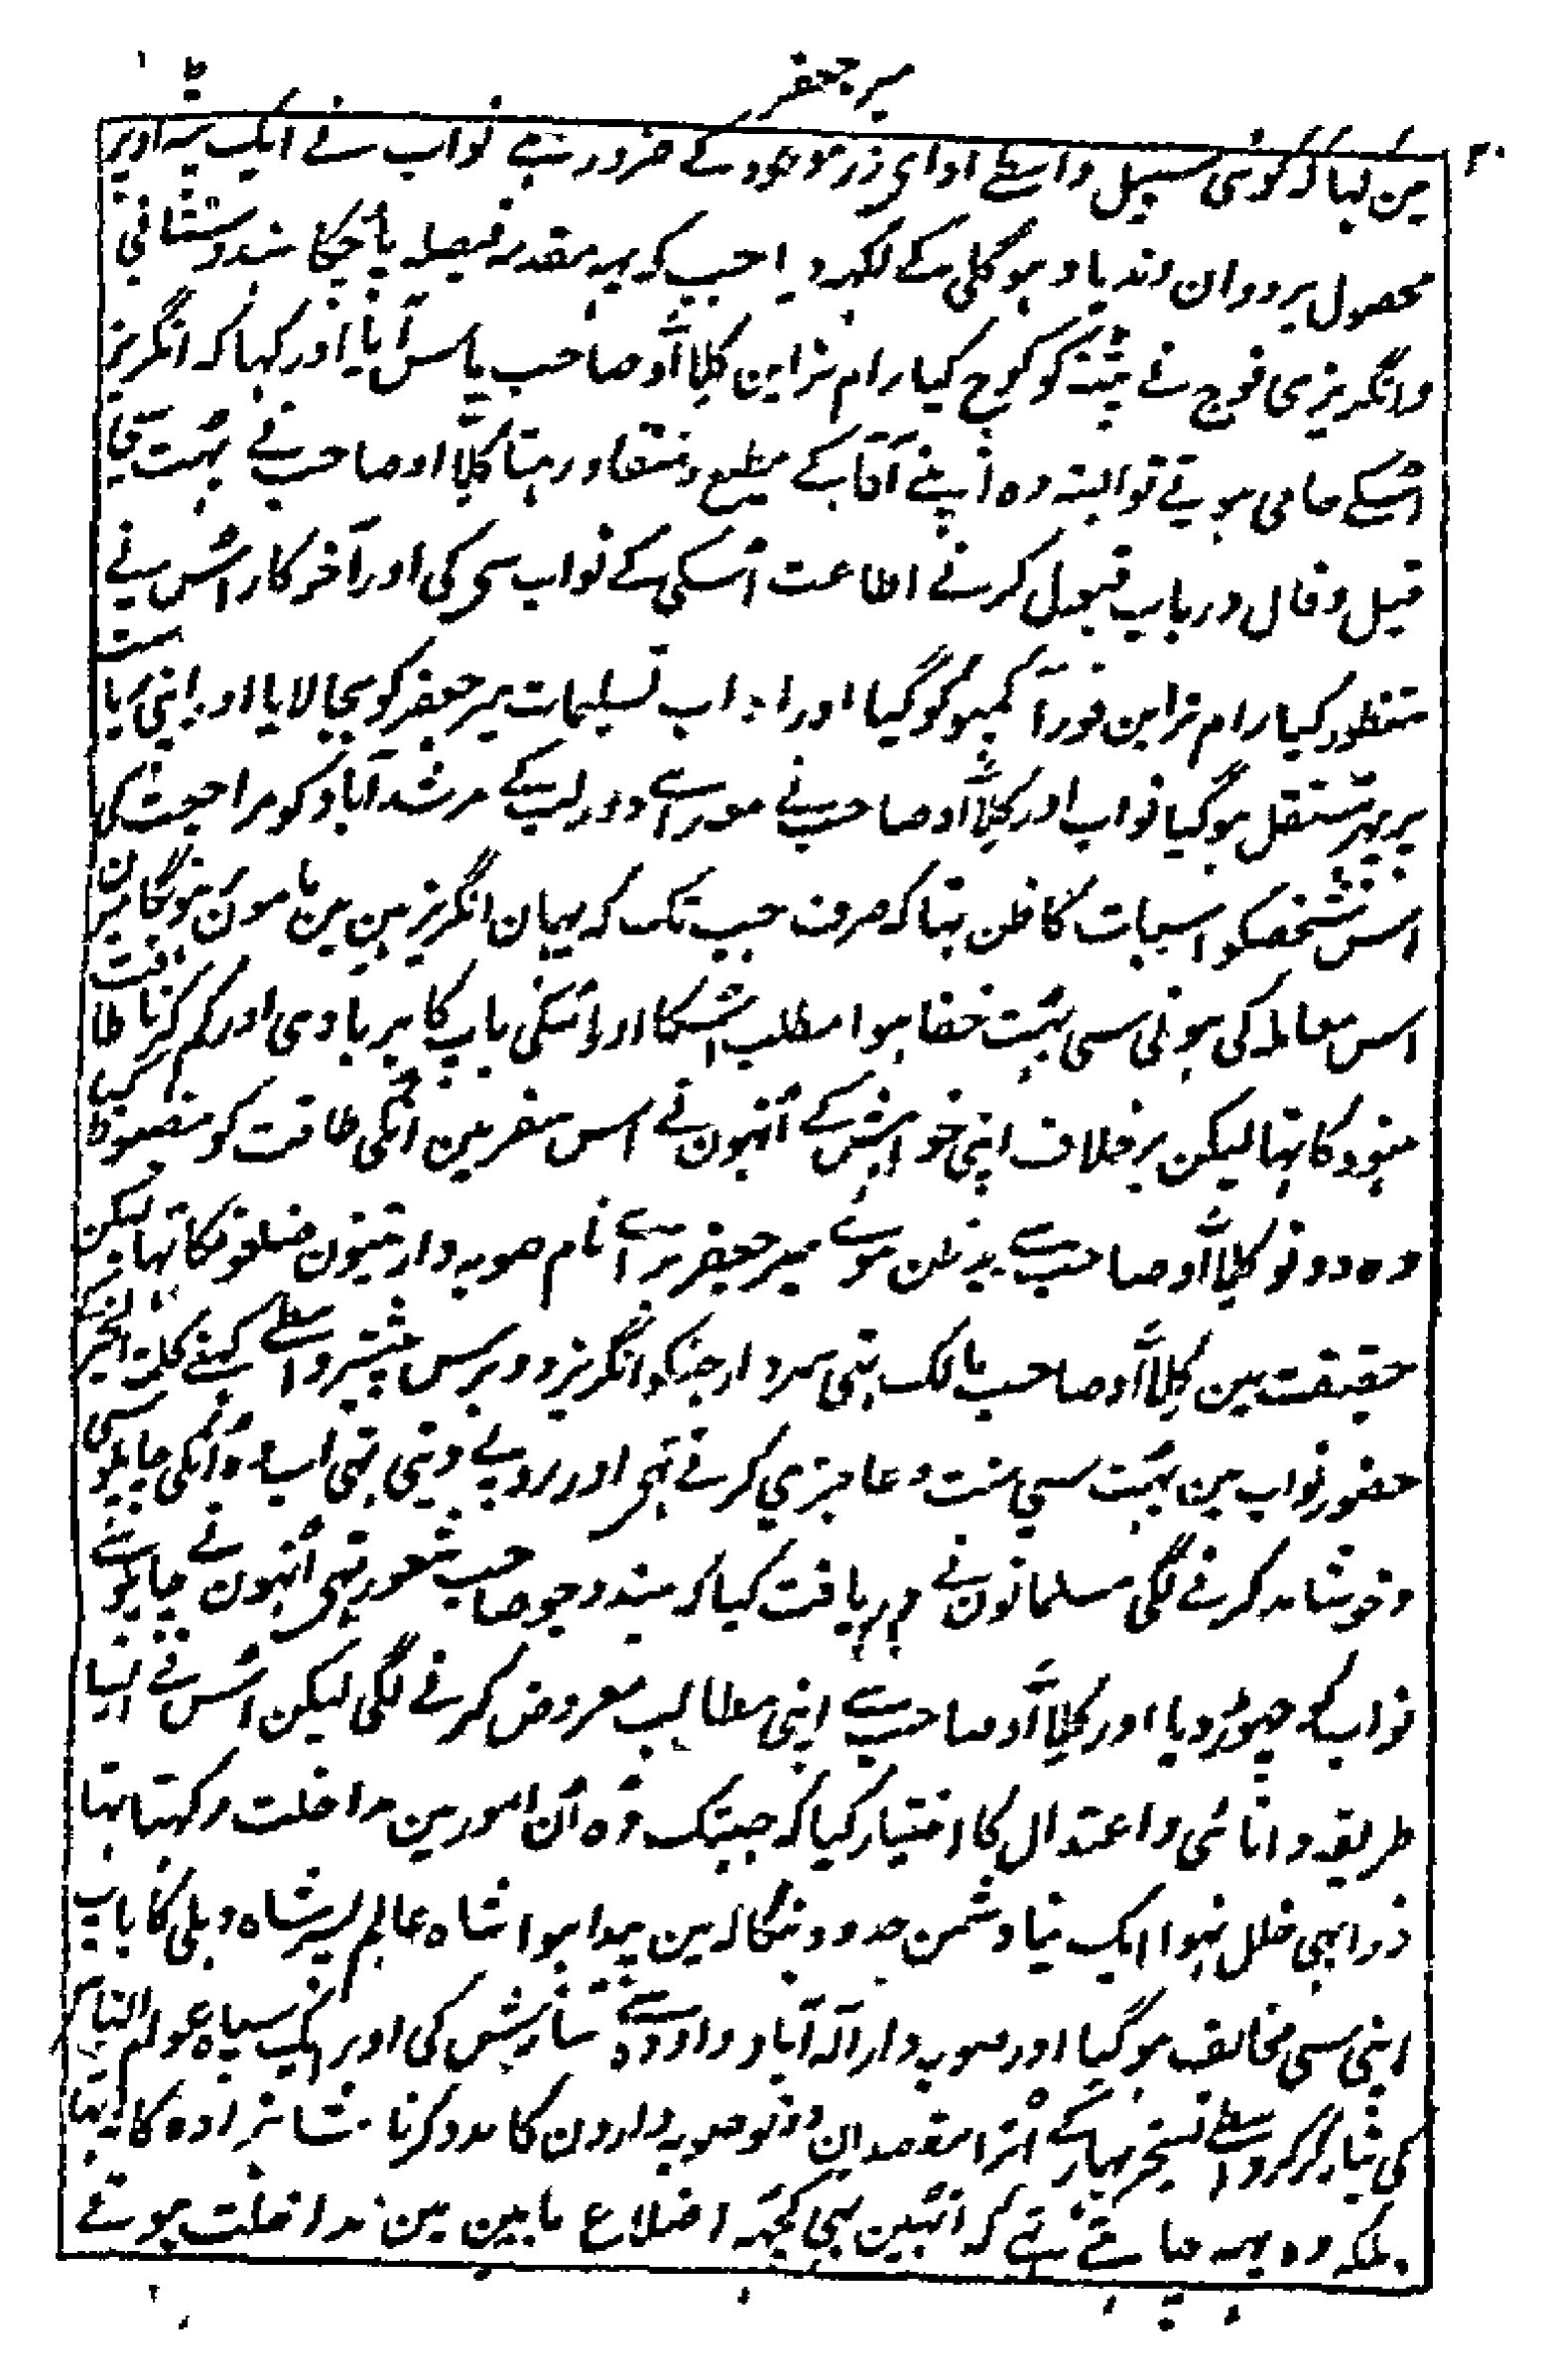 میر جعفر
۲۰
مین کہا کہ کوئی سبیل واسطے ادای زر موعود کے ضرور ہے نواب نے ایک پٹہ اوپر
محصول بردوان وندیا و ہوگلی کے لکہدیا جب کہ یہہ مقدمہ فیصلہ پاچکا ہندوستانی
وانگریزی فوج نے پٹنہ کو کوچ کیا رام نراین کلاآو صاحب پاس آیا اور کہا کہ انگریز
اسکے حامی ہوتے تو البتہ وہ اپنے آقا کے مطیع ومنقاد رہتا کلاآو صاحب نے بہت سی
قیل وقال درباب قبول کرنے اطاعت اسکی کے نواب سی کی اور آخرکار اس نے
منظور کیا رام نراین فوراً کمپو کو گیا اور آداب تسلیمات میر جعفر کو بجا لایا اور اپنی ریاست
پر پہر مستقل ہوگیا نواب اور کلاآو صاحب نے مورائے دورلبہ کے مرشدآباد کو مراجعت کی
اس شخصکو اسبات کا ظن تہا کہ صرف جب تک کہ یہان انگریز ہین مین مامون ہونگا میرن
اس معاملہ کی ہونی سی بہت خفا ہوا مطلب اسکا اور اسکی باپ کا بربادی اور کم کرنا طاقت
ہنود کا تہا لیکن برخلاف اپنی خواہش کے انہون نے اس سفر مین انکی طاقت کو مضبوط کیا
وہ دونو کلاآو صاحب سے بدظن ہوئے میر جعفر برائے نام صوبہ دار تینون ضلعونکا تہا لیکن
حقیقت مین کلاآو صاحب مالک تہی سردار جنکو انگریز دو برس پیشتر واسطے کہنے کلمۃ الخیر کے
حضور نواب مین بہت سی منت وعاجزی کرتے تہی اور روپے دیتی تہی اب وہ انکی چاپلوسی
وخوشامد کرنے لگی مسلمانون نے دریافت کیا کہ ہندو جو صاحب شعور تہی انہون نے چاپلوسی
نواب کو چہوڑ دیا اور کلاآو صاحب سے اپنی مطالب معروض کرنے لگی لیکن اس نے ایسا
طریقہ دانائی واعتدال کا اختیار کیا کہ جبتک وہ ان امور مین مداخلت رکہتا تہا
ذرا بہی خلل نہوا ایک نیا دشمن حدود بنگالہ مین پیدا ہوا شاہ عالم پسر شاہ دہلی کا باپ
اپنی سی مخالف ہوگیا اور صوبہ دار الہ آباد واودہ سے سازش کی اور ایک سپاہ عوام الناس
کی تیار کرکر واسطے تسخیر بہار کے اترا مقصد ان دونو صوبہ دارون کا مدد کرنا شاہزادہ کا نتہا
بلکہ وہ یہہ چاہتے تہے کہ انہین بہی کچہہ اضلاع مابین مین مداخلت ہوئے